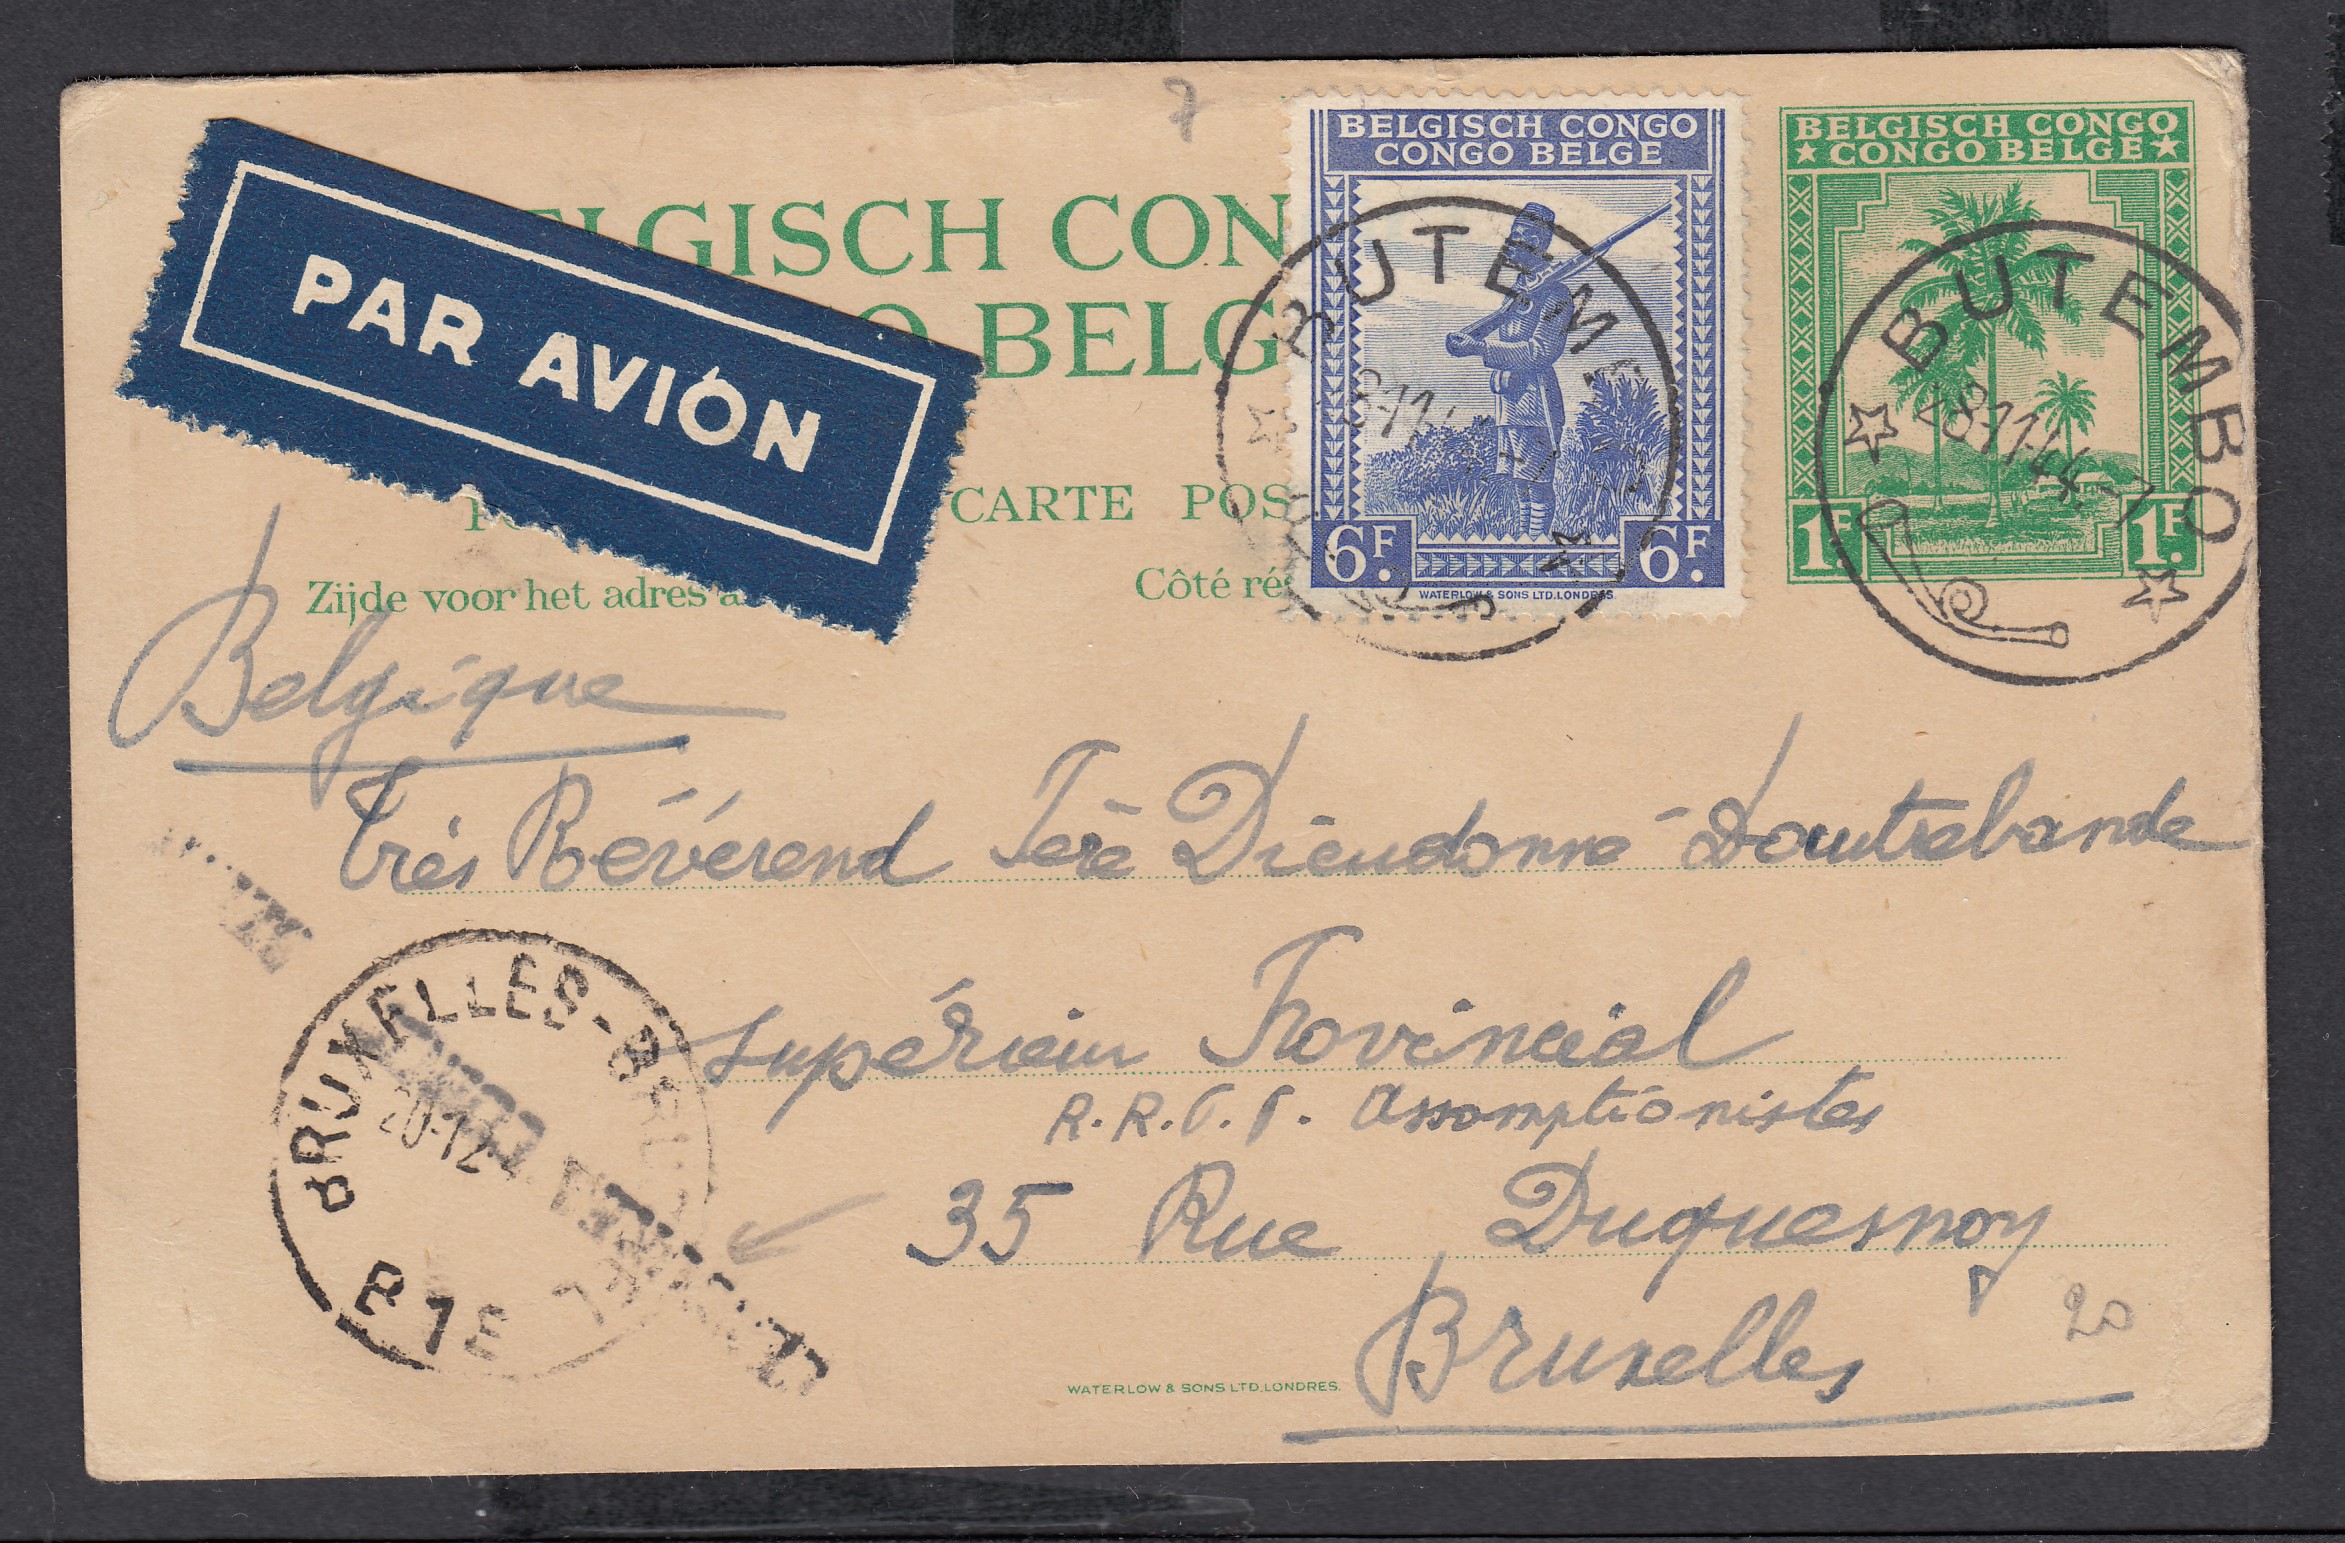 7
BELGISCH CONGO
CONGO BELGE
6F. 6F.
WATERLOW & SONS LTD. LONDRES.
BELGISCH CONGO
★ CONGO BELGE ★
1F. 1F.
BUTEMBO
28-11-44-7
BUTEMB
PAR AVION
ELGISCH CON
O BELG
CARTE POS
Zijde voor het adres
Côté ré
Belgique
Très Révérend Père Dieudonné Dautrebande
supérieur Provincial
R.R.P.P. Assomptionistes
35 Rue Duquesnoy
Bruxelles
20
BRUXELLES-BRU
20-12
B1E
WATERLOW & SONS LTD. LONDRES.